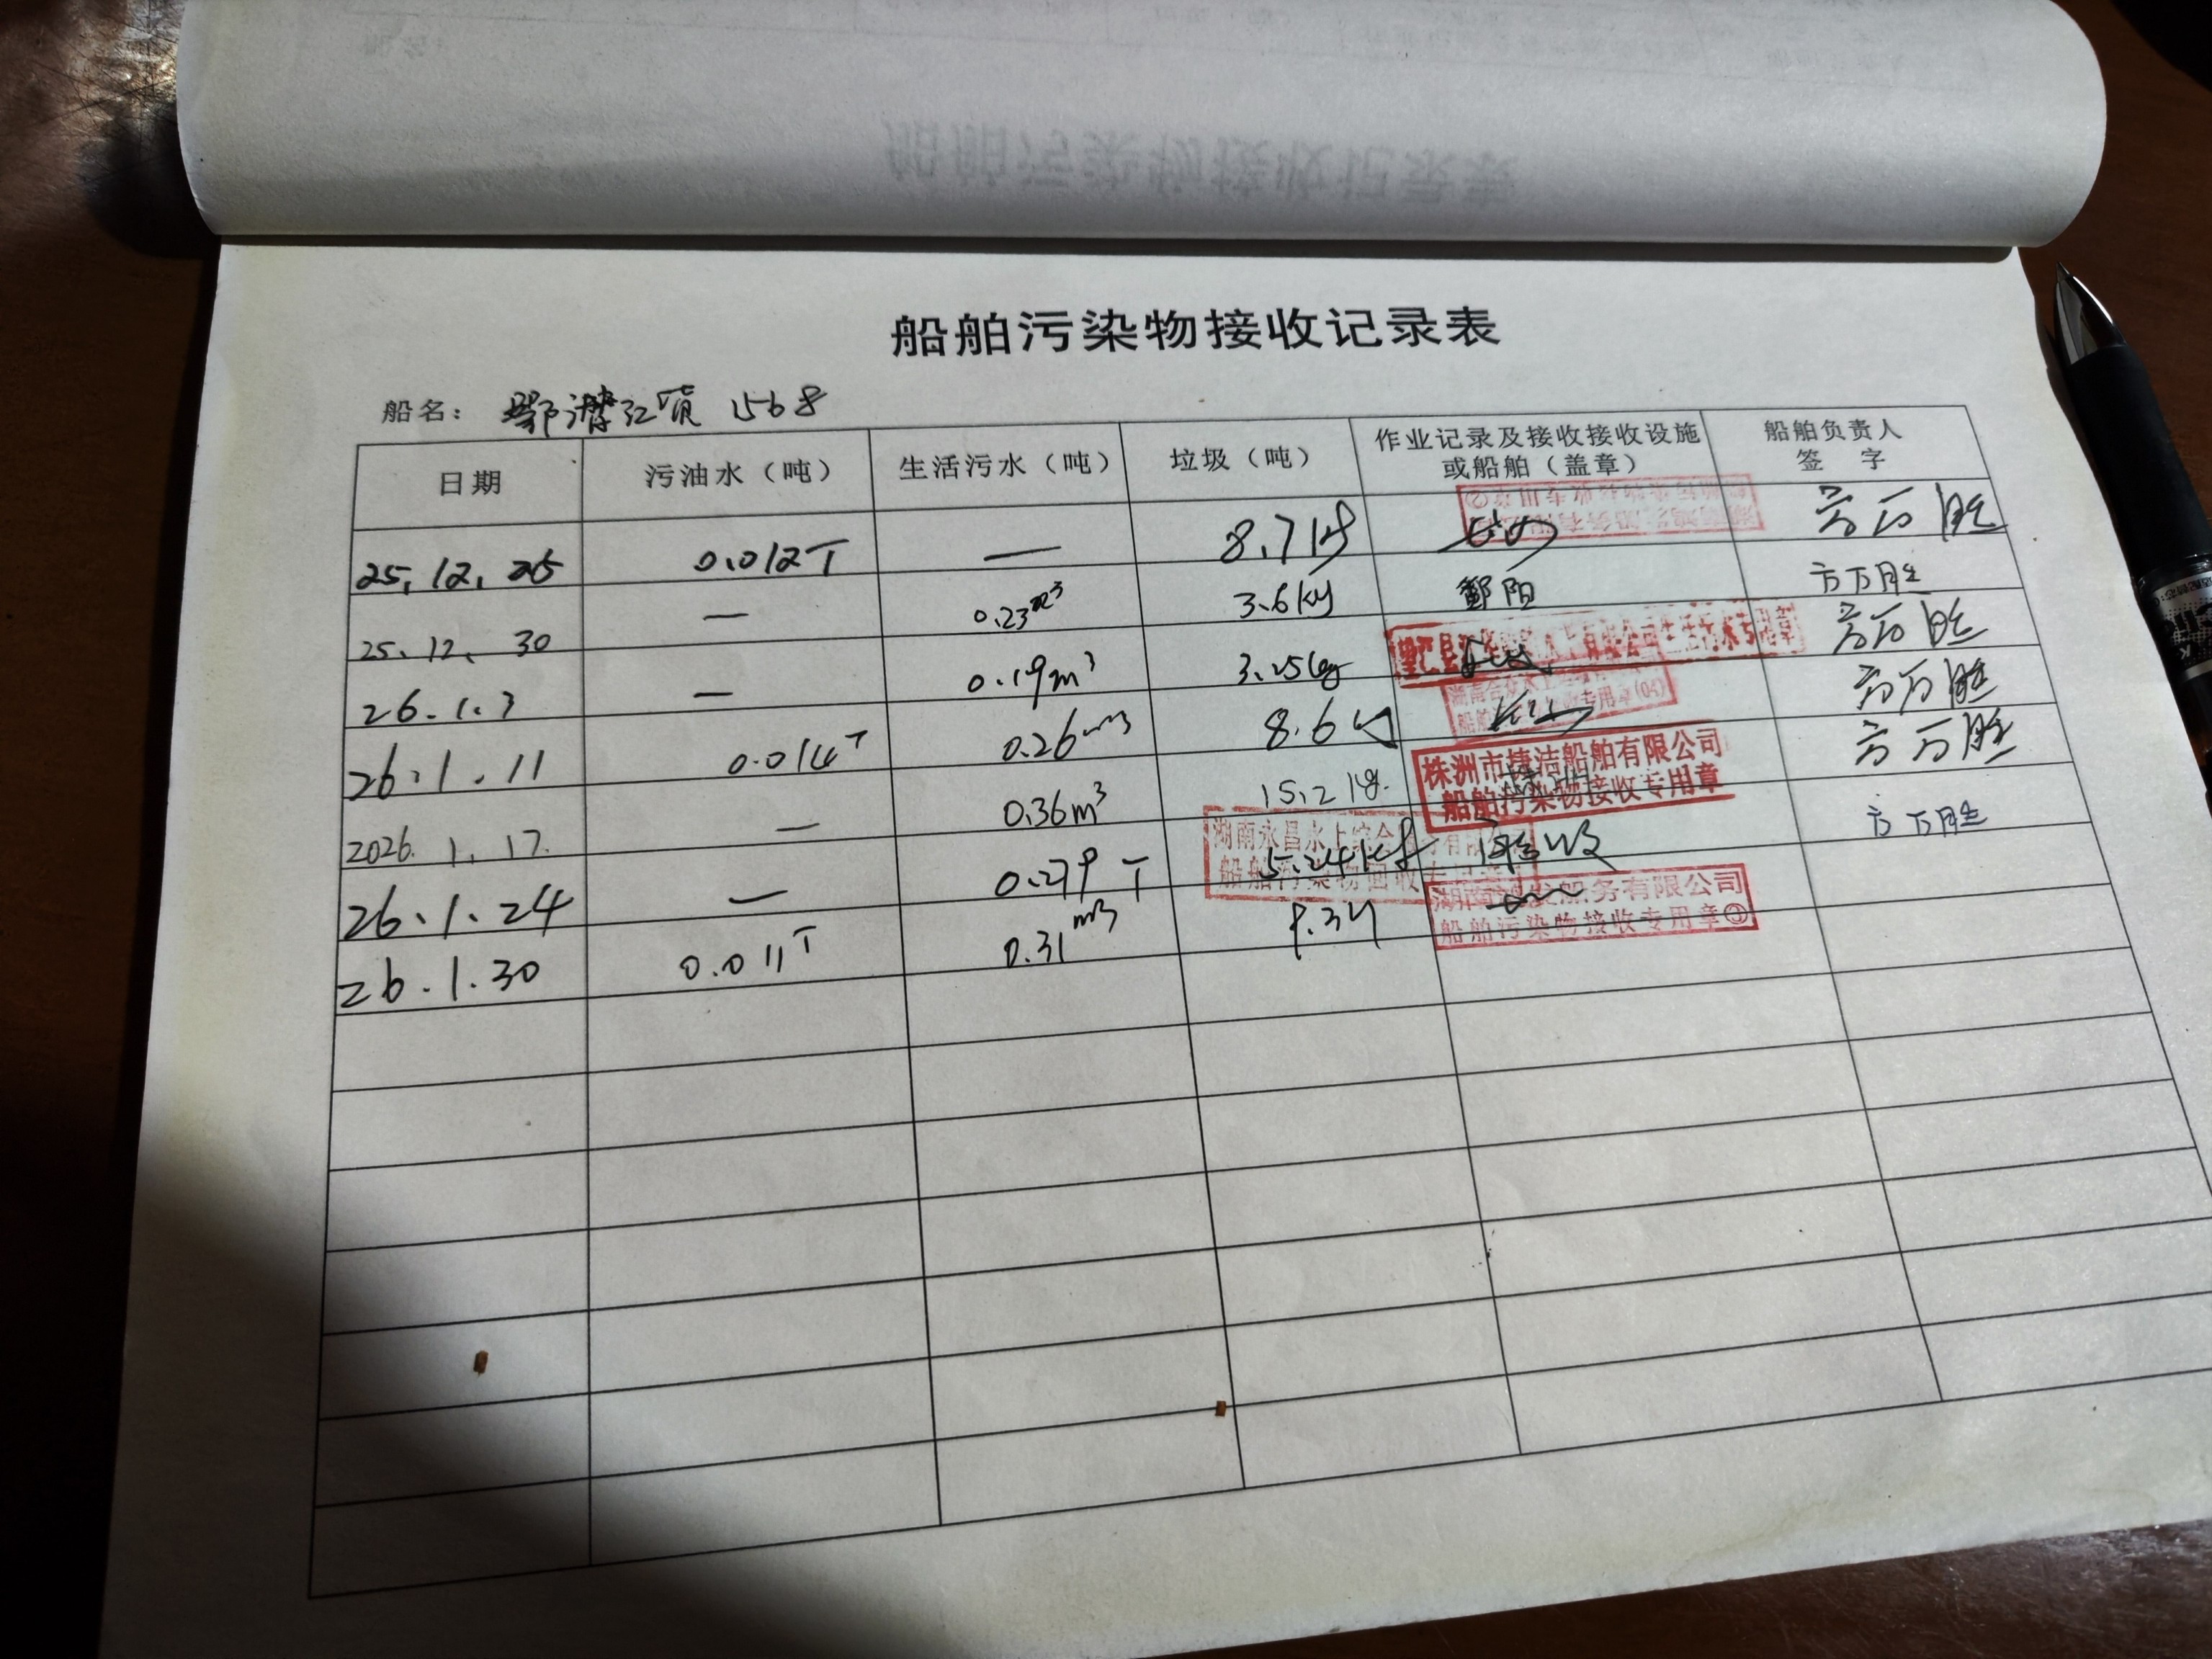 船舶污染物接收记录表
船名： 鄂 江货 1568
日期 污油水（吨） 生活污水（吨） 垃圾（吨） 作业记录及接收接收设施或船舶（盖章） 船舶负责人签 字
25.12.26 0.012T — 8.7kg 方万胜
25.12.30 — 0.23m³ 3.6kg 鄱阳 方万胜
26.1.3 — 0.19m³ 3.25kg 方万胜
26.1.11 0.014T 0.26m³ 8.6 方万胜
2026.1.17. — 0.36m³ 15.2kg. 株洲市捷洁船舶有限公司 船舶污染物接收专用章 方万胜
26.1.24 — 0.279T 5.24kg 湖南永昌水上综合 务有限 船舶污染物回收专 验收 方万胜
26.1.30 0.011T 0.31m³ 湖南 发船务有限公司 船舶污染物接收专用章③